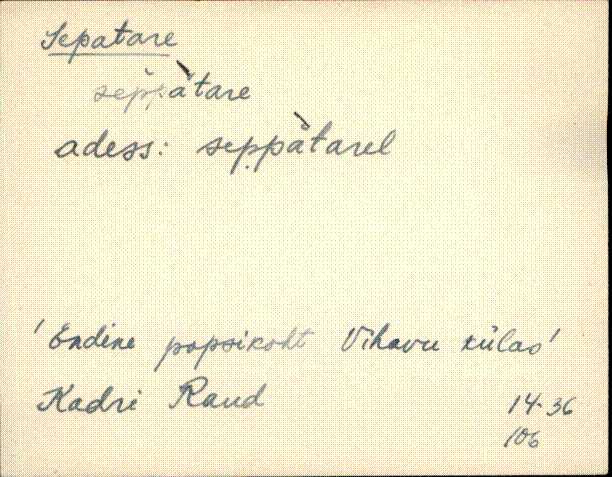 Sepatare
sepp̀ătare
adess: sep̣pàtarel
'Endine popsikoht Vihavu külas'
Kadri Raud
14-36
106